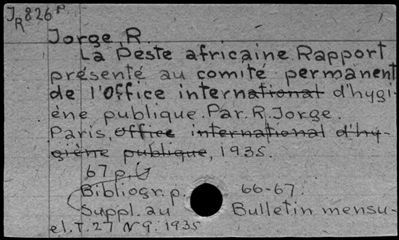 J R 826 P
Jorge R.
La Peste africaine. Rapport
présenté au comité permanent
de l'Office international d'hygi-
ène publique. Par. R. Jorge.
Paris, Office international d'hy-
giène publique, 1935.
67 p.
(Bibliogr. p. 66-67.
Suppl. au Bulletin mensu-
el. T. 27 N 9. 1935